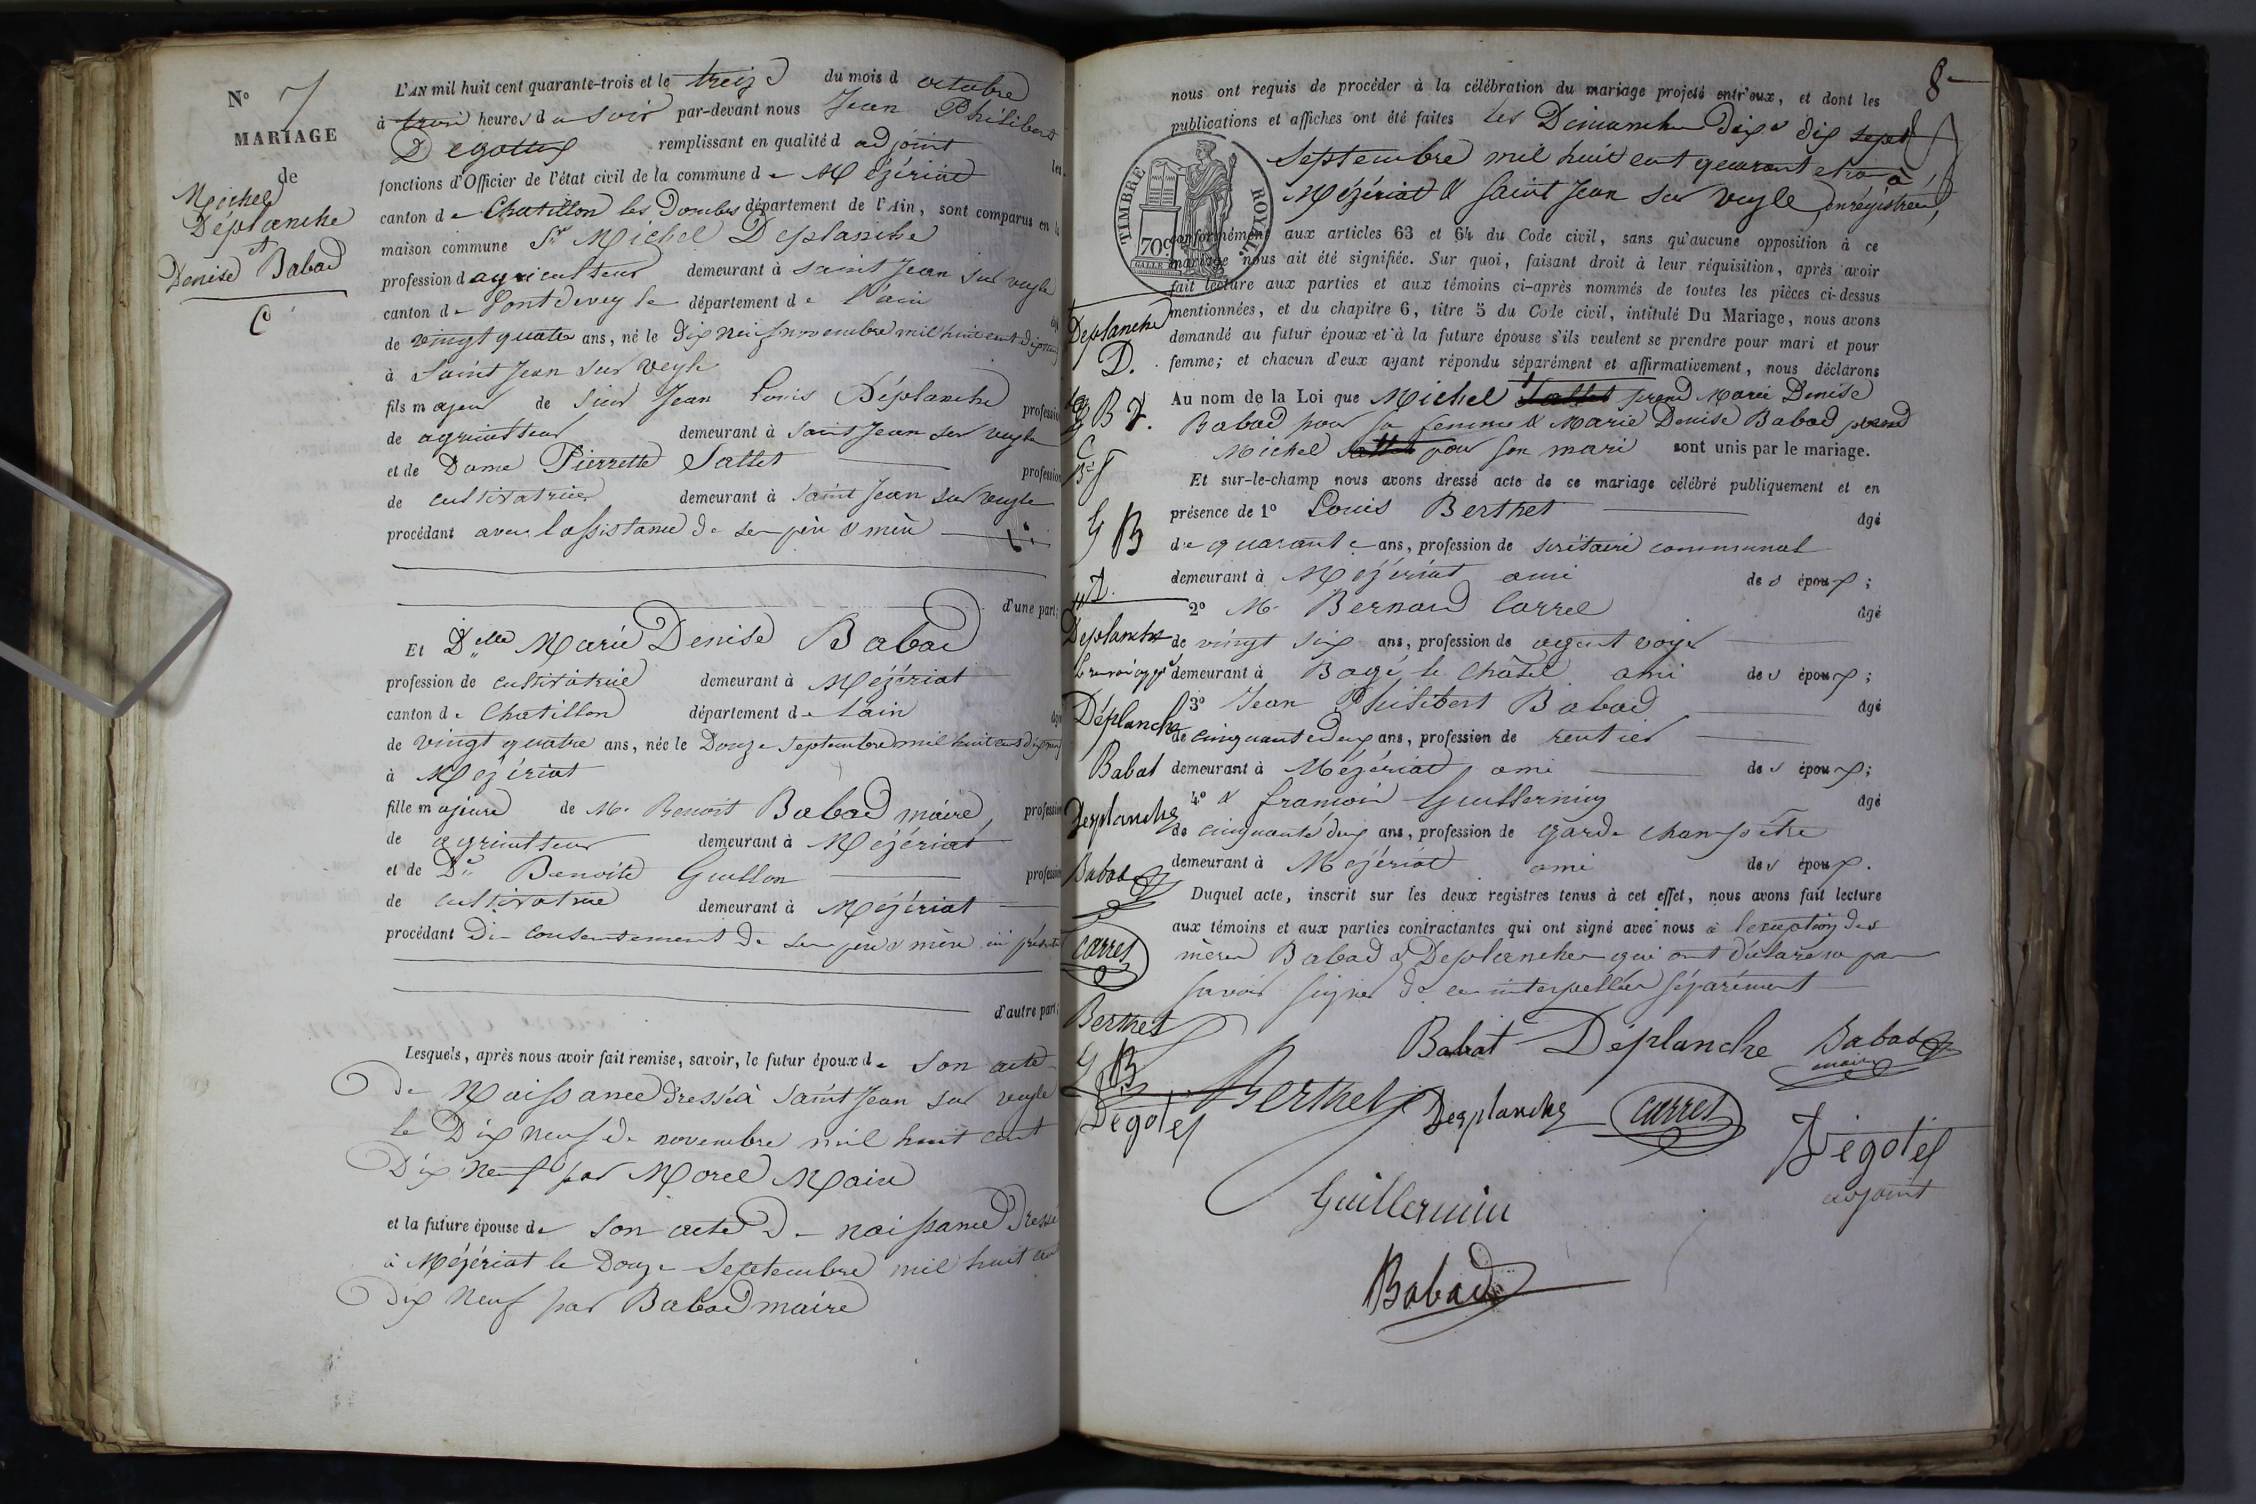 N° 7
MARIAGE
de
Michel
Déplanche
et
Denise Babad
C
L'AN mil huit cent quarante-trois et le treize du mois d octobre
à trois heures du soir par-devant nous Jean Philibert
Degottex remplissant en qualité d adjoint les
fonctions d'Officier de l'état civil de la commune de Mézériat
canton de Chatillon les Dombes département de l'Ain, sont comparus en la
maison commune Sr Michel Deplanche
profession d agriculteur demeurant à saint Jean sur veyle
canton de Pontdeveyle département de l'ain
de vingt quatre ans, né le Dix neuf novembre mil huit cent dix neuf
à Saint Jean sur Veyle
fils majeur de sieur Jean Louis Déplanche profession
de agriculteur demeurant à saint Jean sur veyle
et de Dame Pierrette Sallet profession
de cultivatrice demeurant à saint Jean sur veyle
procédant avec l'assistance de ses père & mère
d'une part;
Et Delle Marie Denise Babad
profession de cultivatrice demeurant à Mézériat
canton de Chatillon département de l'ain
de vingt quatre ans, née le Douze septembre mil huit cent dix neuf
à Mézériat
fille majeure de Mr Benoit Babad maire, profession
de agriculteur demeurant à Mézériat
et de De Benoite Guillon profession
de cultivatrice demeurant à Mézériat
procédant Du consentement de ses père & mère ici présents
d'autre part;
Lesquels, après nous avoir fait remise, savoir, le futur époux de son acte
de Naissance dressé à saint Jean sur veyle
le Dix neuf de novembre mil huit cent
Dix Neuf par Morel Maire
et la future épouse de son acte de naissance dressé
à Mézériat le Douze Septembre mil huit cent
dix Neuf par Babad maire
8
nous ont requis de procéder à la célébration du mariage projeté entr'eux, et dont les
publications et affiches ont été faites les Dimanches dix & dix sept
Septembre mil huit cent quarante trois à
Mézériat & Saint Jean sur veyle enrégistrées,
TIMBRE ROYAL
70c
conformément aux articles 63 et 64 du Code civil, sans qu'aucune opposition à ce
mariage nous ait été signifiée. Sur quoi, faisant droit à leur réquisition, après avoir
fait lecture aux parties et aux témoins ci-après nommés de toutes les pièces ci-dessus
mentionnées, et du chapitre 6, titre 5 du Code civil, intitulé Du Mariage, nous avons
demandé au futur époux et à la future épouse s'ils veulent se prendre pour mari et pour
femme; et chacun d'eux ayant répondu séparément et affirmativement, nous déclarons
Au nom de la Loi que Michel Sallet prend Marie Denise
Babad pour sa femme & Marie Denise Babad prend
Michel Sallet pour son mari sont unis par le mariage.
Et sur-le-champ nous avons dressé acte de ce mariage célébré publiquement et en
présence de 1° Louis Berthet âgé
de quarante ans, profession de secrétaire communal
demeurant à Mézériat ami des époux;
2° Mr Bernard Carrel âgé
de vingt six ans, profession de agent voyer
demeurant à Bagé le Châtel ami des époux;
3° Jean Philibert Babad âgé
de cinquante deux ans, profession de rentier
demeurant à Mézériat ami des époux;
4° & françois Guillermin âgé
de cinquante deux ans, profession de garde champêtre
demeurant à Mézériat ami des époux.
Duquel acte, inscrit sur les deux registres tenus à cet effet, nous avons fait lecture
aux témoins et aux parties contractantes qui ont signé avec nous à l'exception des
mères Babad & Deplanche qui ont déclaré ne pas
savoir signer de ce interpellées séparément
Deplanche
D.
B D.
G B
Deplanche
Déplanche
Babat
Desplanche
Babad
Carrel
Berthet
G B
Dégotex
Babat Déplanche Babad
maire
Berthet Desplanche Carrel
Dégotex
adjoint
Guillermin
Babad